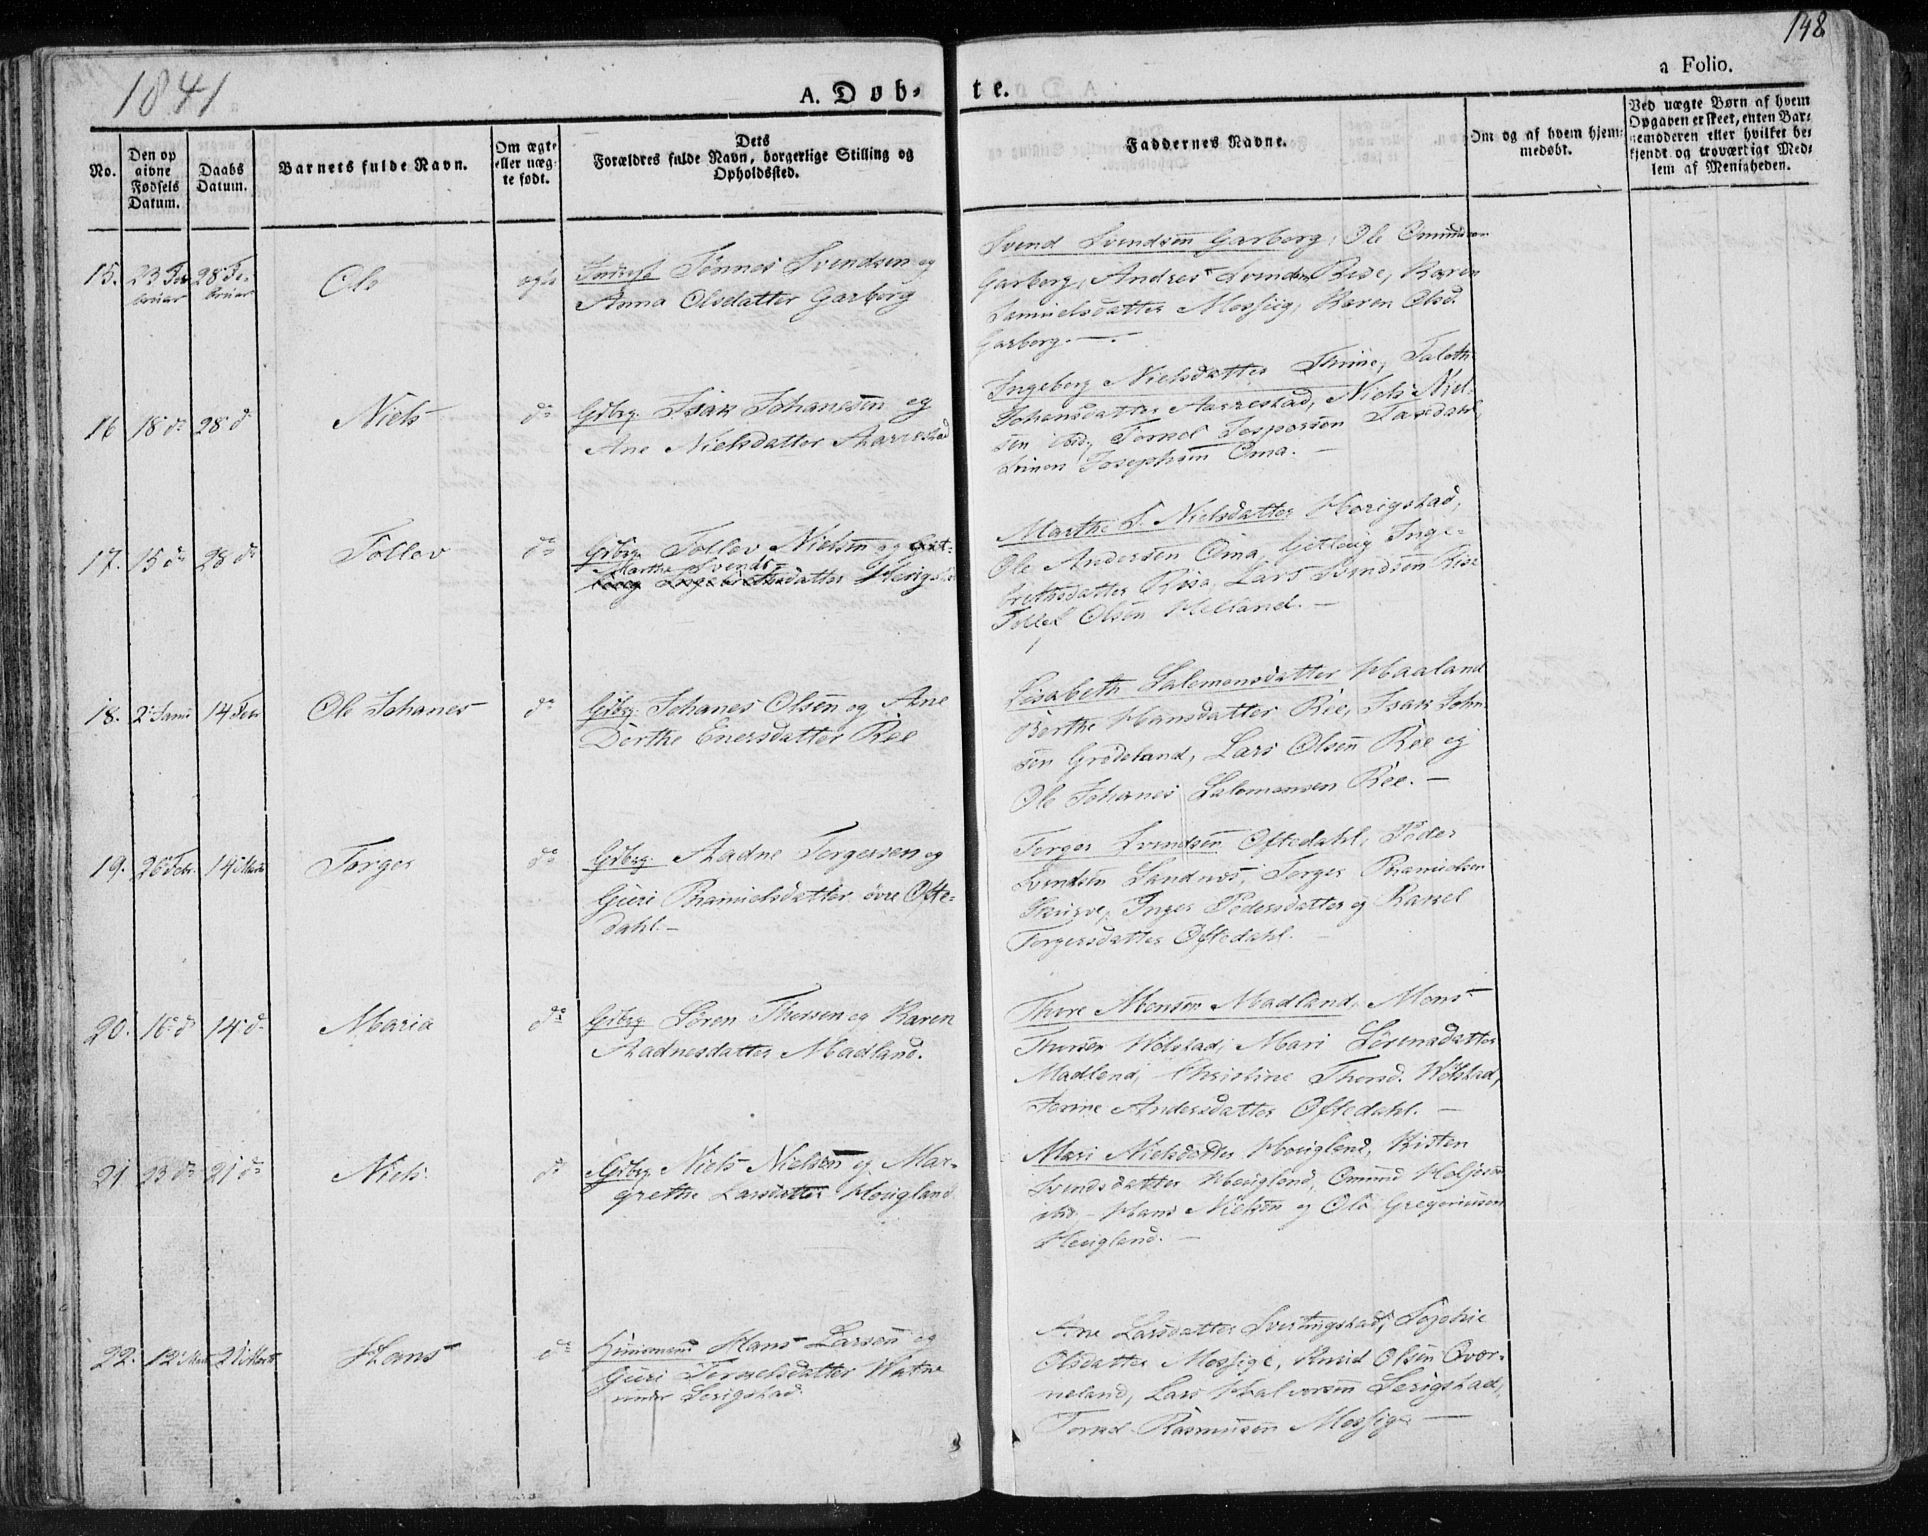 148
1841
A. Døb-
te.
a Folio.
No.
Den op
givne
Fødsels
Datum.
Daabs
Datum.
Barnets fulde Navn.
Om ægte
eller uæg-
te født.
Dets
Forældres fulde Navn, borgerlige Stilling og
Opholdssted.
Faddernes Navne.
Om og af hvem hjem-
medøbt.
Ved uægte Børn af hvem
Opgaven er skeet, enten Bar-
nemoderen eller hvilket be-
kjendt og troværdigt Med-
lem af Menigheden.
15. 23 Fe-
bruar
28 Fe-
bruar
Ole
ægte
Inderst Tönnes Svendsen og
Anna Olsdatter Garborg
Svend Svendsen Garborg, Ole Omundsen
Garborg, Andres Svendsen Rise, Karen
Samuelsdatter Mossiig, Karen Olsd.
Garborg. —
16 18 do 28 d
Niels
do
Gbrg. Isak Johanesen og
Ane Nielsdatter Aarrestad
Ingeborg Nielsdatter Thime,
Johensdatter Aarrestad, Niels Niel-
sen ibid, Tormod Jespersen
Simon Josephsen Oma. —
17. 15 do 28 do
Tollov
do
Gbrg. Tollov Nielsen og
Marthe Svends-
datter
Marthe S. Nielsdatter Hörigstad,
Ole Andersen Oma, Inge-
brethsdatter Risa, Lars Svendsen Rise
Tollef Olsen Helland. —
18. 2 Janu 14 Febr
Ole Johanes
do
Gbrg. Johanes Olsen og Ane
Dorthe Enersdatter Ree
Lisabeth Salomonsdatter Haaland
Berthe Hansdatter Ree, Isak John-
sen Grödeland, Lars Olsen Ree og
Ole Johanes Salomonsen Ree. —
19. 26 Febr. 14 Marts
Torger
do
Gbrg. Aadne Torgersen og
Guri Ramielsdatter övre Ofte-
dahl. —
Torger Svendsen Oftedahl, Peder
Svendsen Sandnes, Torger Ramielsen
Skurve, Inger Pedersdatter og Rakel
Torgersdatter Oftedahl. —
20. 16 d 14 d.
Maria
do
Gbrg Sören Thorsen og Karen
Aadnesdatter Madland.
Thore Monsen Madland, Mons
Thorsen Wölstad, Mari Sörensdatter
Madland, Christine Thorsd. Wölstad,
Serine Andersdatter Oftedahl. —
21 23 do 21 do
Niels
do
Gbrg. Niels Nielsen og Mar-
grethe Larsdatter Houigland
Mari Nielsdatter Houigland, Kisten
Svendsdatter Houigland, Omund
ibid. Hans Nielsen og Ole Gregoriussen
Houigland. —
22. 12 Mar 21 Marts
Hans
do
Huusmand Hans Larsen og
Guri Tormelsdatter Watne
under Serigstad
Ane Larsdatter Svertingstad, Sophie
Olsdatter Mossige, Knud Olsen Qvær-
neland, Lars Halvorsen Serigstad,
Tormod Rasmusen Mossige —